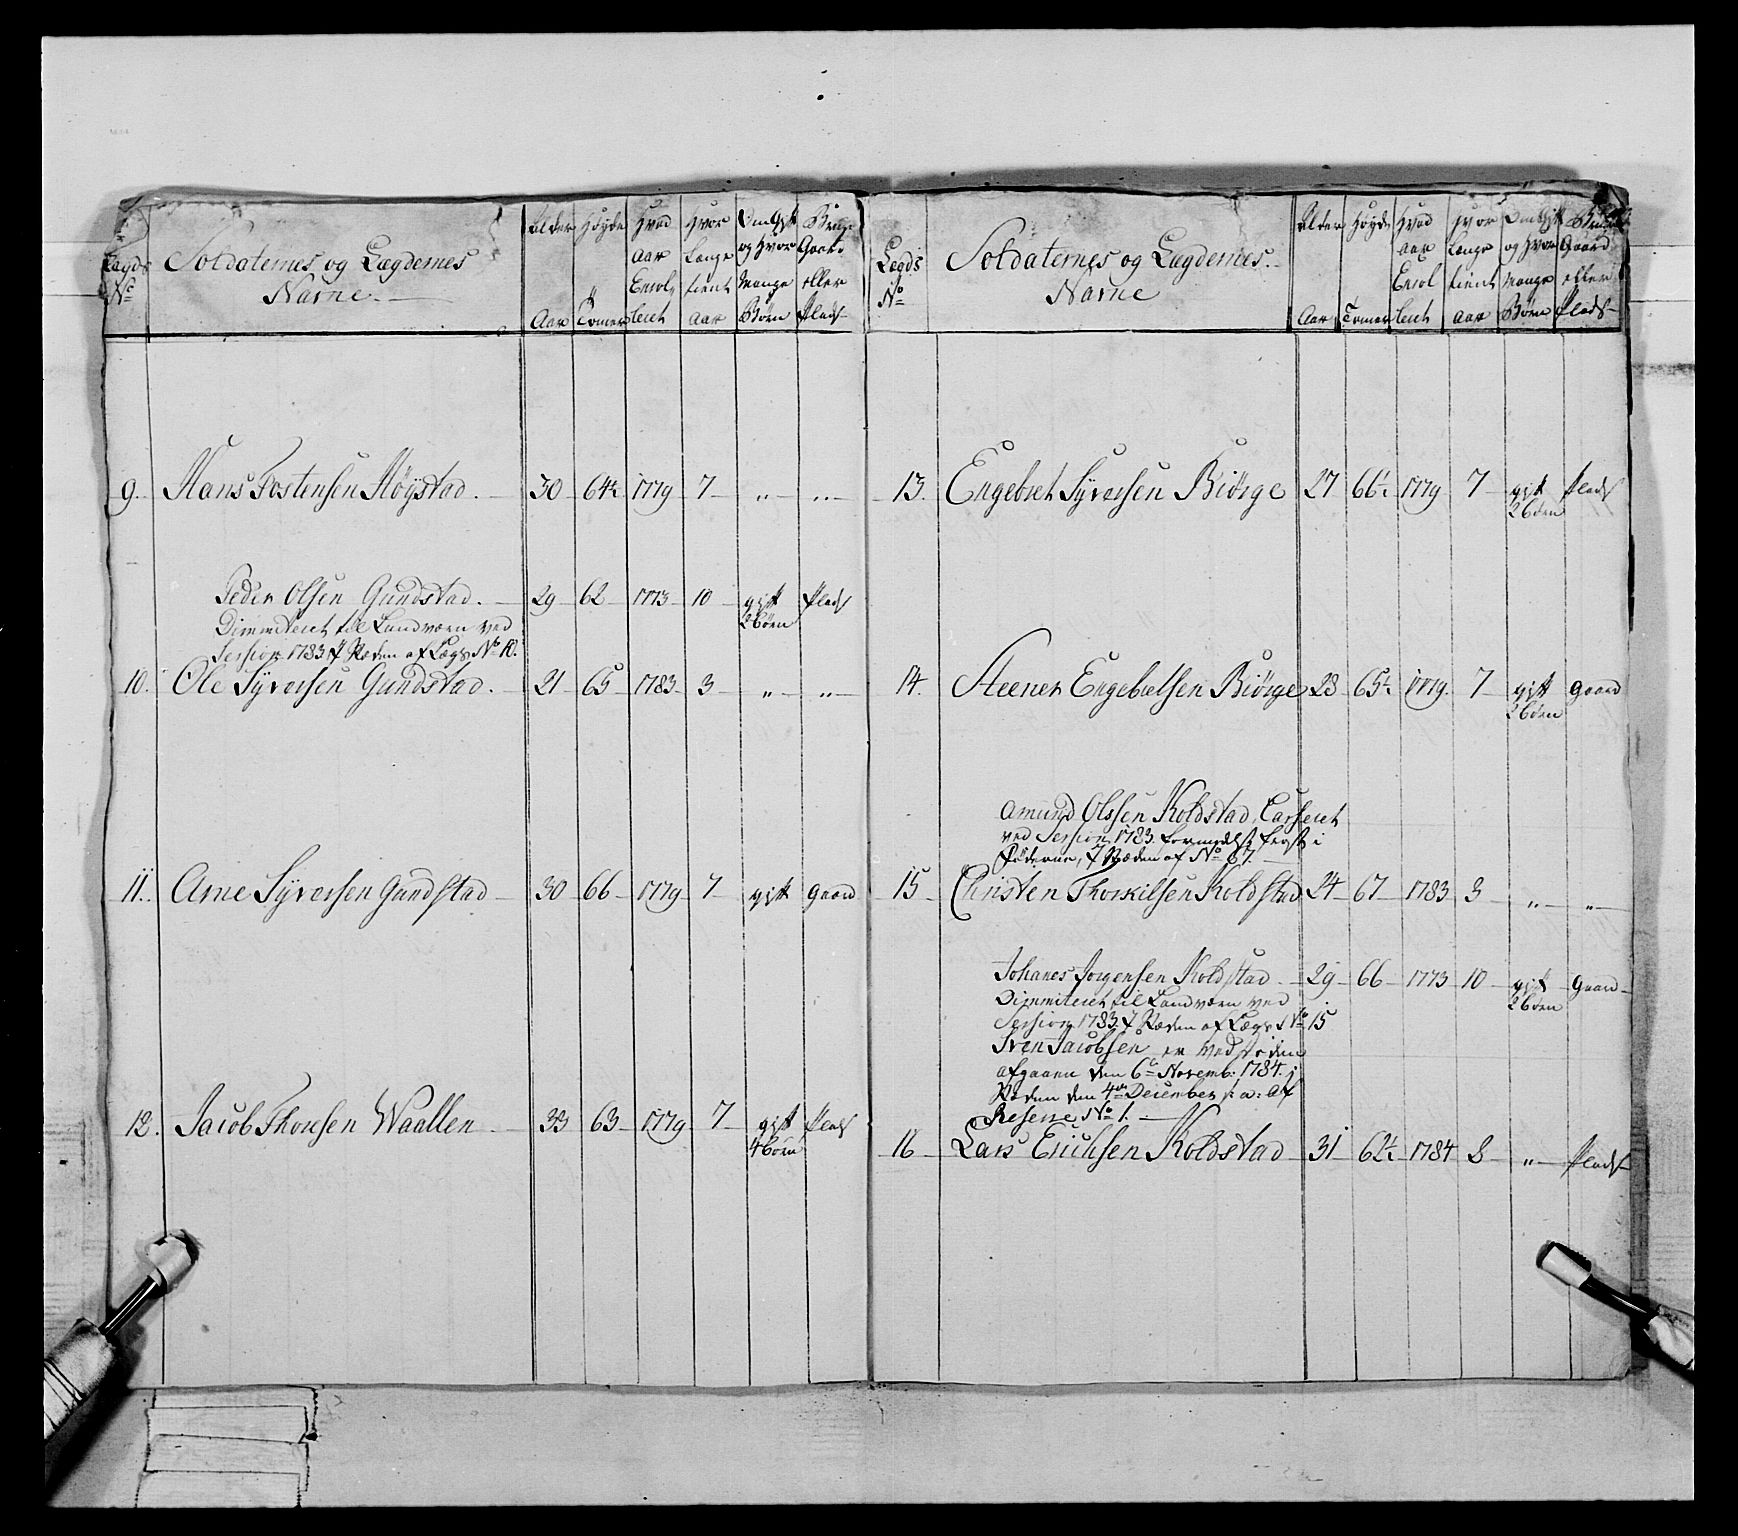 Legds No
Soldaternes og Lægdernes Navne.
Alder Aar
Høyde Tomer
Hvad Aar Enrolleret
Hvor Længe tient Aar
Om Gift og Hvor Mange Børn
Gaard eller Plads
Legds No
Soldaternes og Lægdernes Navne
Alder Aar
Høyde Tomer
Hvad Aar Enrolleret
Hvor Længe tient Aar
Om Gift og Hvor Mange Børn
Gaard eller Plads
9. Hans Tostensen Høystad. 30 64½ 1779 7 „ „
Peder Olsen Gundstad. 29 62 1773 10 gift 2 børn Plads
Dimmiteret til Landværn ved
Session 1783 af Lægs No 10.
10. Ole Syversen Gundstad. 21 65 1783 3 „ „
11. Arne Syversen Gundstad 30 66 1779 7 gift Gaard
12. Jacob Thorsen Waallen 33 63 1779 7 gift 4 børn Plads
13. Engebret Syversen Biørge 27 66½ 1779 7 gift 2 børn Plads
14. Steener Engebretsen Biørge 28 65½ 1779. 7 gift 2 børn Gaard
Amund Olssen Koldstad, Casseret
ved Session 1783 formedelst i
Fødderne, af No 67.
15 Christen Thorkilsen Koldstad 24 67 1783 3 „ „
Johanes Jorgensen Koldstad 29 66 1773 10 gift 2 børn Gaard
Dimmiteret til Landværn ved
Session 1783 af Lægs No 15
Sven Jacobsen er ved døden
afgaaen den 6te Novemb: 1784. i
den 4de December s: a: af
Reserve No 1.
16 Lars Erichsen Koldstad 31 62½ 1784 2 „ Plads